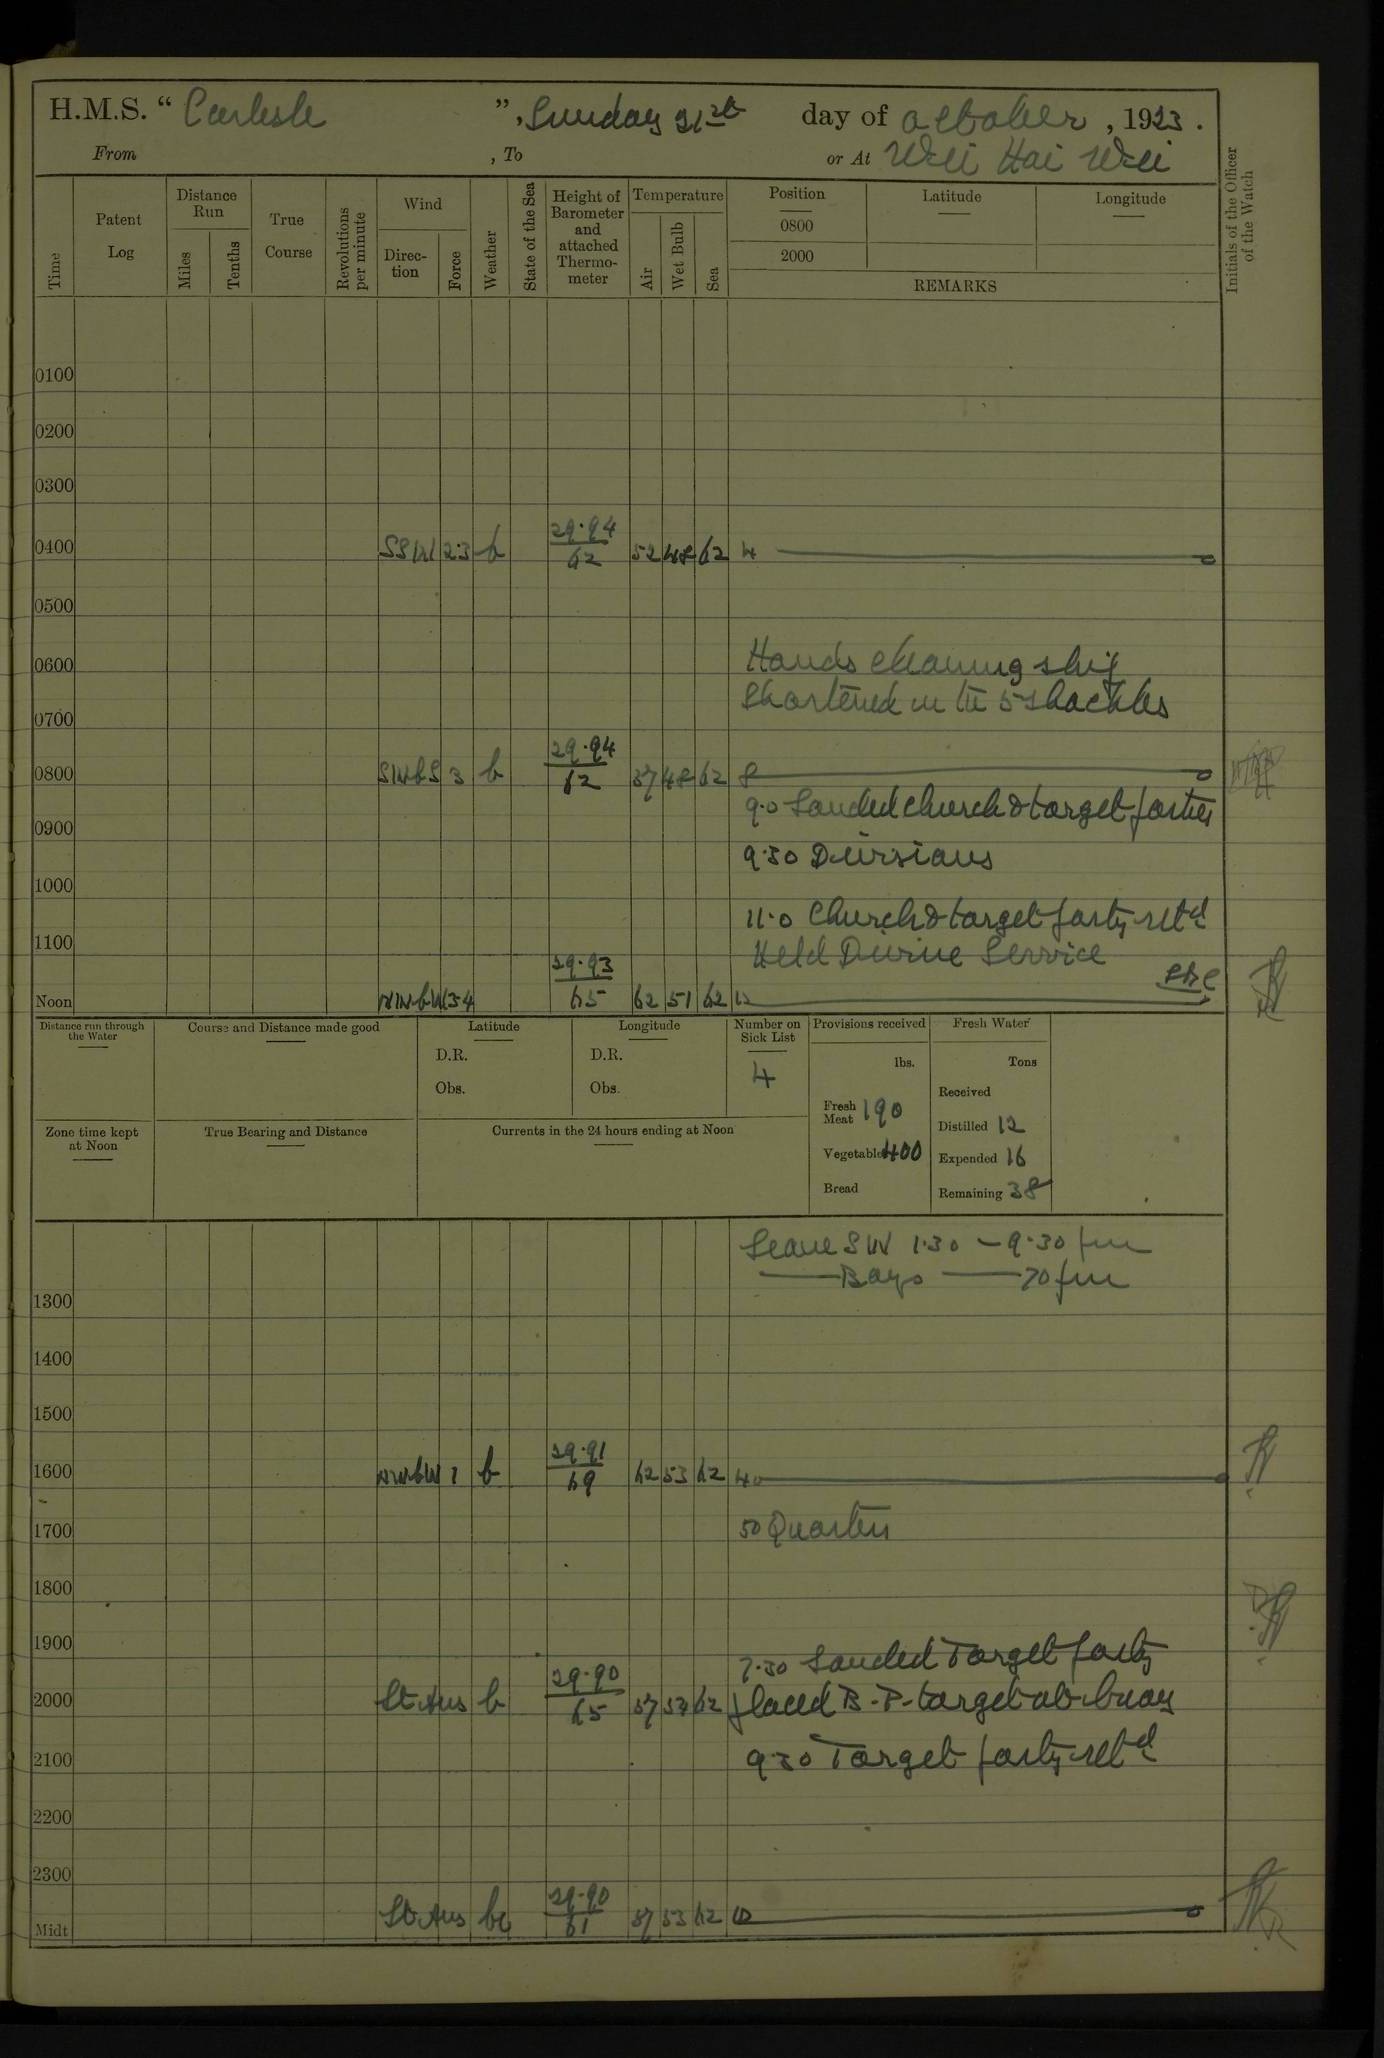 H.M.S. “ Carlisle ”, Sunday 21st day of October, 1923.
From , To or At Wei Hai Wei
Time Patent Log Distance Run Miles Tenths True Course Revolutions per minute Wind Direc-tion Force Weather State of the Sea Height of Barometer and attached Thermo-meter Temperature Air Wet Bulb Sea Position 0800 2000 Latitude Longitude REMARKS Initials of the Officer of the Watch
0100
0200
0300
0400 SSW 2.3 b 29.94 62 52 48 62 4
0500
0600 Hands cleaning ship
Shortened in to 5 shackles
0700
0800 SWbS 3 b 29.94 62 57 48 62 8
9.0 Landed church & target parties
0900
9.30 Divisions
1000
11.0 Church & target party retd
1100 Held Divine Service
Noon NWbW 3.4 29.93 65 62 51 62 12
Distance run through the Water
Course and Distance made good
Latitude D.R. Obs.
Longitude D.R. Obs.
Number on Sick List 4
Provisions received lbs.
Fresh Meat 190
Vegetables 400
Bread
Fresh Water Tons
Received
Distilled 12
Expended 16
Remaining 38
Zone time kept at Noon
True Bearing and Distance
Currents in the 24 hours ending at Noon
Leave SW 1.30 — 9.30 pm
—— Boys —— 70 pm
1300
1400
1500
1600 NWbW 1 b 29.91 69 62 53 62 40
1700 50 Quarters
1800
1900 7.30 Landed Target party
2000 Lt Airs b 29.90 65 57 53 62 placed B.P. target at buoy
2100 9.30 Target party retd
2200
2300
Midt Lt Airs bc 29.90 61 57 53 62 12